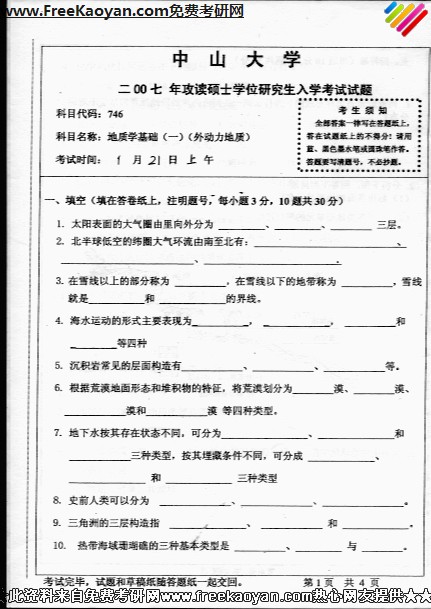 www.FreeKaoyan.com免费考研网
中 山 大 学
二00七 年攻读硕士学位研究生入学考试试题
科目代码：746
科目名称：地质学基础（一）（外动力地质）
考试时间： 1 月 21 日 上 午
考 生 须 知
全部答案一律写在答题纸上，
答在试题纸上的不得分！请用
蓝、黑色墨水笔或圆珠笔作答。
答题要写清题号，不必抄题。
一、填空（填在答卷纸上，注明题号，每小题3分，10题共30分）
1. 太阳表面的大气圈由里向外分为________、________、________三层。
2. 北半球低空的纬圈大气环流由南至北有：________________、
________________、________________.
3. 在雪线以上的部分称为________，在雪线以下的地带称为________，雪线
就是________和________的界线。
4. 海水运动的形式主要表现为________，________，________和
________等四种
5. 沉积岩常见的层面构造有________、________、________等。
6. 根据荒漠地面形态和堆积物的特征，将荒漠划分为________漠、________漠、
________漠和________漠 等四种类型。
7. 地下水按其存在状态不同，可分为________、________和
________三种类型，按其埋藏条件不同，可分成________、
________和________三种类型
8. 史前人类可以分为________、________、________。
9. 三角洲的三层构造指________、________和________。
10. 热带海域珊瑚礁的三种基本类型是________、________与________。
考试完毕，试题和草稿纸随答题纸一起交回。
第 1 页 共 4 页
此资料来自免费考研网www.freekaoyan.com热心网友提供★★